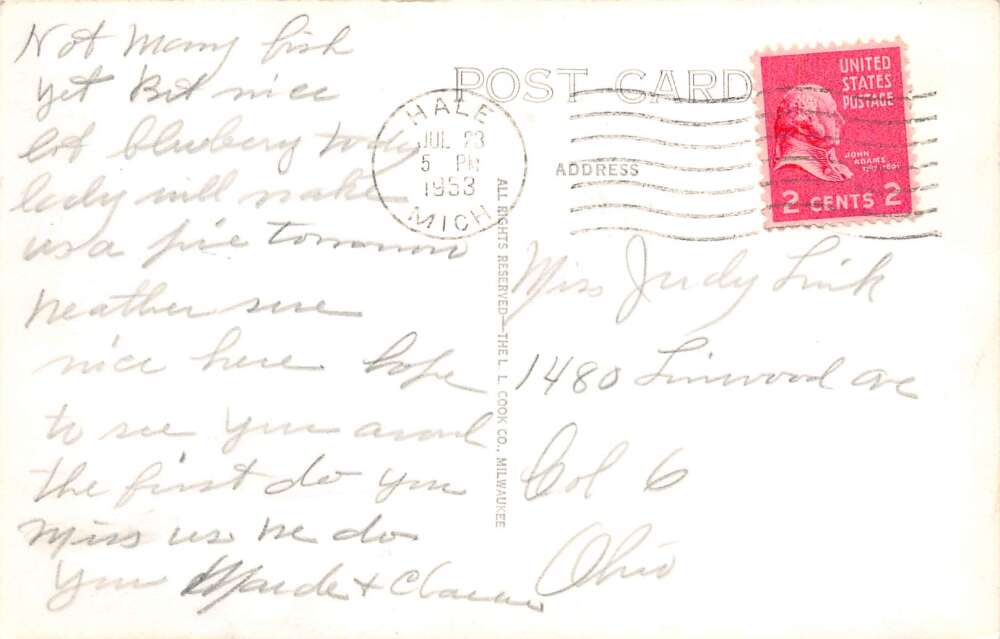 Not Many fish
yet But nice
lot blueberry today
lady will make
us a pie tomorrow
Weather sure
nice here hope
to see you around
the first do you
Miss us we do
you & 
POST CARD
ADDRESS
HALE
JUL 23
5 PM
1953
MICH
UNITED
STATES
POSTAGE
JOHN
ADAMS
2 CENTS 2
ALL RIGHTS RESERVED—THE L. L. COOK CO., MILWAUKEE
Miss Judy Link
1480 Linwood ave
Col 6
Ohio